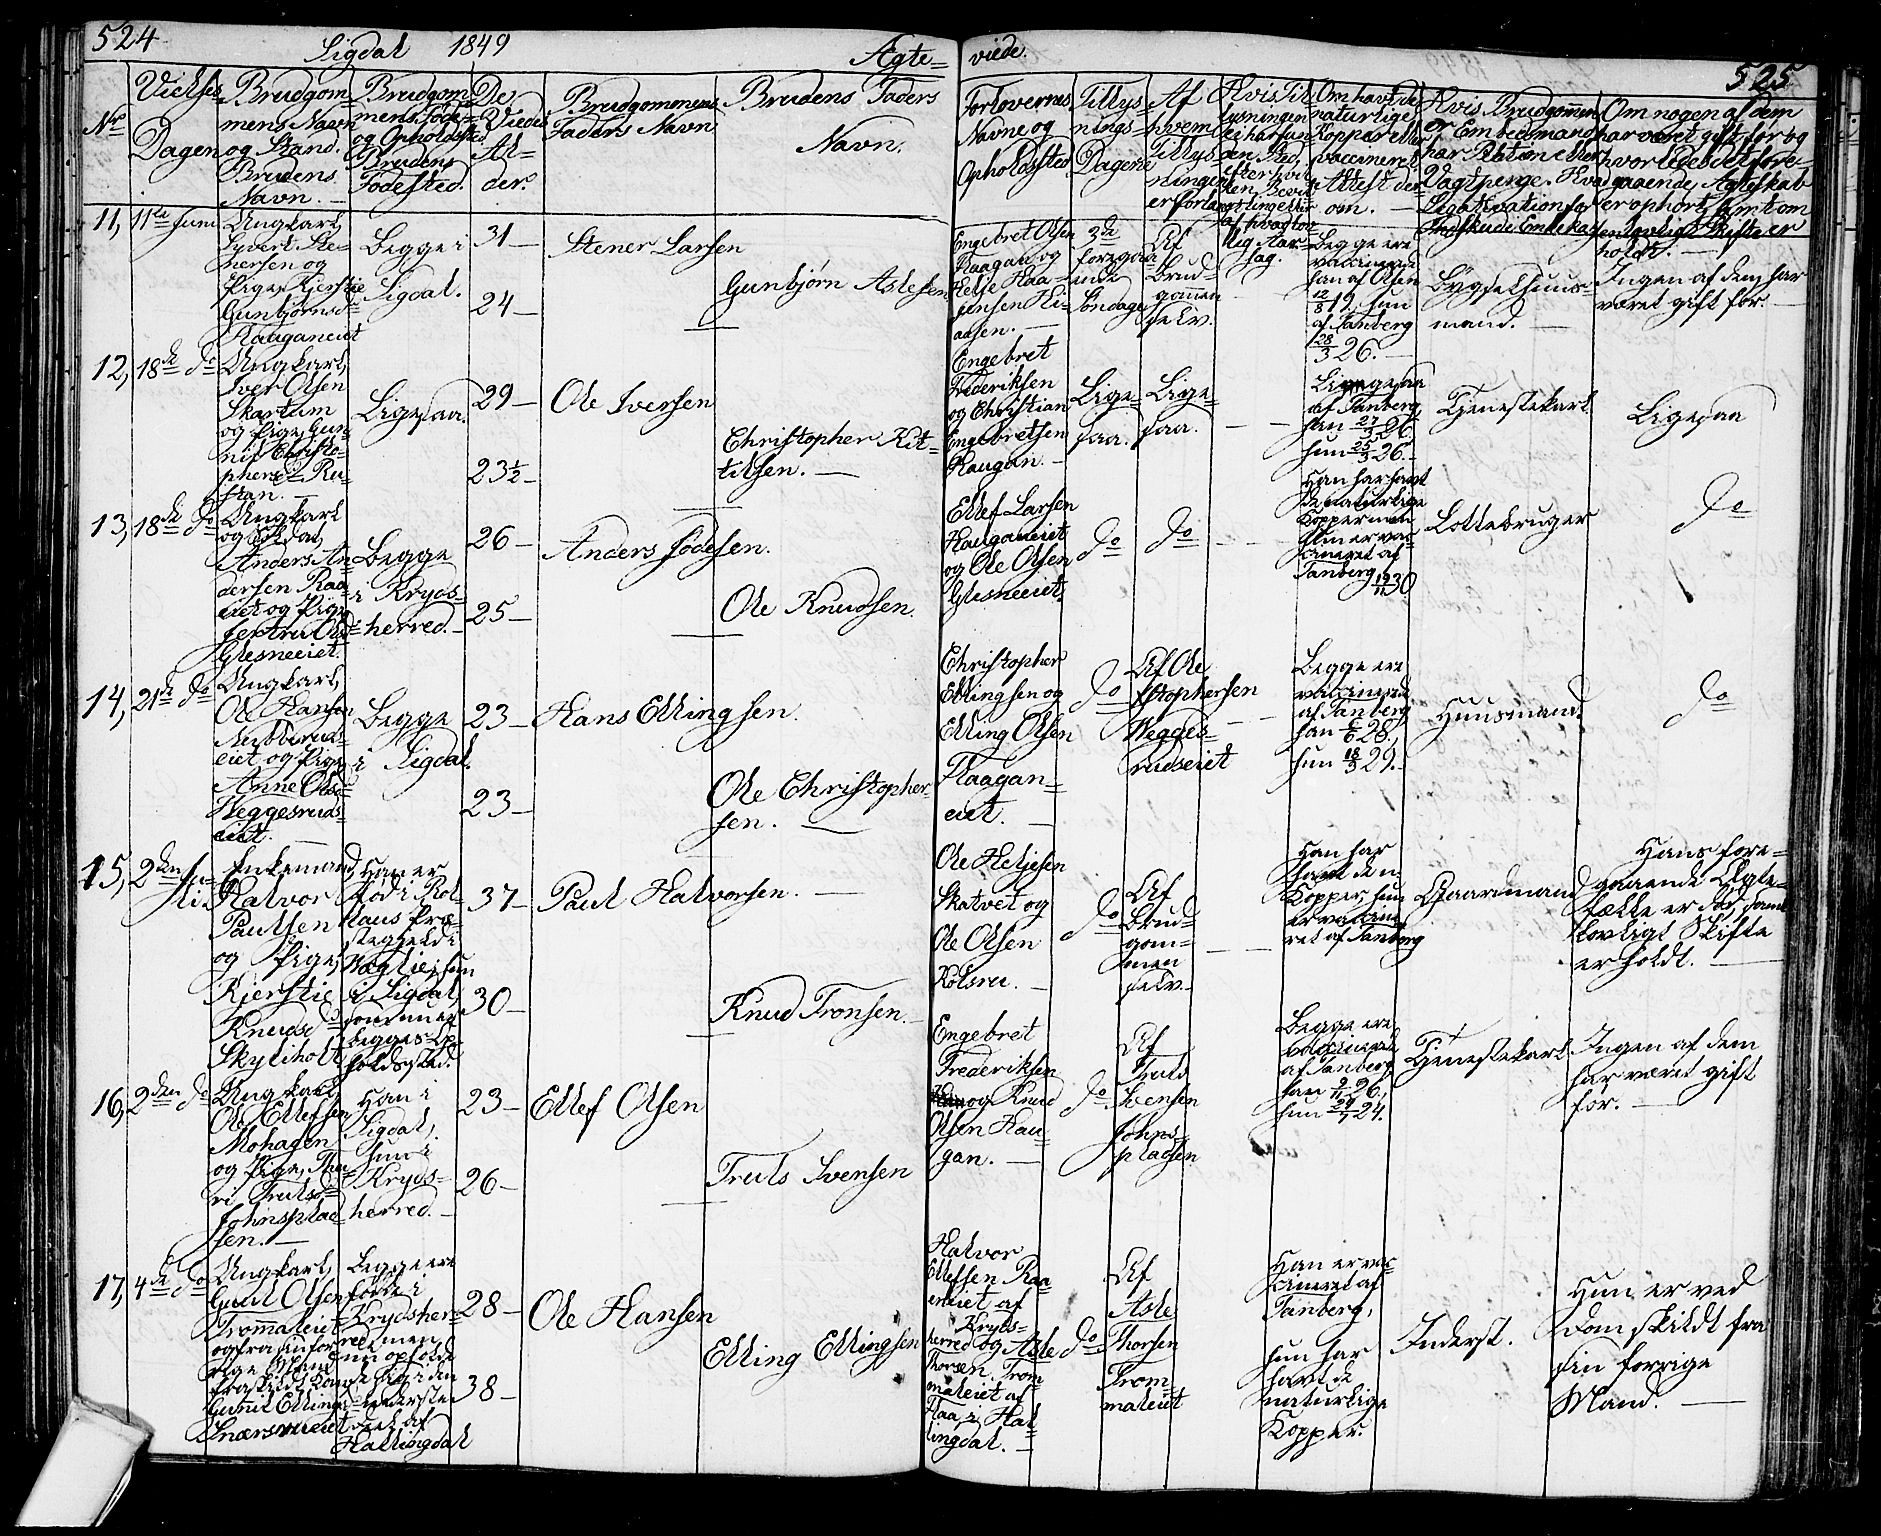 524
Sigdal 1849
Ægte=
viede.
525
No
Vielses
Dagen
Brudgom
mens Navn
og Stand.
Brudens
Navn.
Brudgom
mens Føde=
og Opholdsted.
Brudens
Fødested.
De
Viedes
Al=
der.
Brudgommens
Faders Navn
Brudens Faders
Navn.
Forlovernes
Navne og
Opholdsted
Tillys
nings=
Dagene
Af
hvem
Tillys
ningen
er forlangt
Hvis Til
lysningen
ei har fun
den Sted,
Om havt de
naturlige
Kopper eller
vaccineret
Attest der=
om.
Hvis Brudgommen
er Embedsmand
har Pension eller
Om nogen af dem
har været gift før og
hvorledes det fore=
gaaende Ægteskab
er ophørt, samt om
holdt.
11, 11te Juni
Ungkarl,
Syvert Ste=
nersen og
Pige, Kjerstie
Gunbjørnsd
Haaganeiet
Begge i
Sigdal.
31—
24—
Stener Larsen
Gunbjørn Aslesen
Engebret Olsen
Haagan og
Helje Haa=
gensen Li=
aasen.
3de
foregaa
ende
Søndage
Af
Brud=
gommen
selv.
Begge ere
vaccinerede
han af Olsen
12/8 19, hun
af Tanberg
28/3 26.
Bygselhuus=
mand.
Ingen af dem har
været gift før.
12, 18de do
Ungkarl,
Iver Olsen
Skartum
og Pige, Gun=
nil Christo=
phersd Ru=
stan.
Ligesaa.
29—
23½—
Ole Iversen
Christopher Kit=
tilsen.
Engebret
Frederiksen
og Christian
Engebretsen
Haugan.
Lige=
saa.
Lige=
saa.
Ligesaa
af Tanberg,
han 27/3 26
hun 25/3 26.
Tjenestekarl
Ligesaa
13, 18de do
Ungkarl
og Soldat,
Anders An=
dersen Raa=
eiet og Pige
Jertru Olsd
Glesneeiet.
Begge
i Kryds=
herred.
26—
25—
Anders Jødesen.
Ole Knudsen.
Ellef Larsen
Hauganeiet
og Ole Olsen
Glesneeiet.
do
do
Han har havt
de naturlige
Kopper men
hun er vac=
cineret af
Tanberg 30
Lottebruger
do
14, 21de do
Ungkarl,
Ole Hansen
Nubberuds=
eiet og Pige
Anne Olsd
Heggesruds=
eiet.
Begge
i Sigdal.
23—
23—
Hans Ellingsen.
Ole Christopher=
sen.
Christopher
Ellingsen og
Elling Olsen
Haagan=
eiet.
do
Af Ole
Christophersen
Hegges=
rudseiet
Begge ere
vaccinerede
af Tanberg
han 28,
hun 18/3 29.
Huusmand.
do
15, 2den Ju=
li.
Enkemand,
Halvor
Paulsen
og Pige,
Kjerstie
Knudsd
Skyliholt
Han er
født i Rol
laus Præ=
stegjeld i
hun
i Sigdal
som nu er
begges Op=
holdssted.
37—
30—
Paul Halvorsen.
Knud Tronsen.
Ole Heljesen
Skatvet og
Ole Olsen
Kolsru.
do
Af
Brud=
gom=
men
selv.
Han har
havt den
Kopper, hun
er vaccine
ret af Tanberg
Gaardmand
Hans fore=
gaaende Ægte=
fælle er død, samt
lovligt Skifte
er holdt.
16, 2den do
Ungkarl,
Ole Ellefsen
Mohagen
og Pige, Thu=
ri Trulsd
Johnsplad=
sen.
Han i
Sigdal,
hun i
Kryds=
herred.
23—
26—
Ellef Olsen
Truls Svensen
Engebret
Frederiksen
og Knud
Olsen Hau=
gan.
do
Af
Truls
Svensen
Johns=
pladsen
Begge ere
vaccinerede
af Tanberg
han 9/11 26,
hun 29/7 24.
Tjenestekarl
Ingen af dem
har været gift
før.
17, 4de do
Ungkarl,
Gunl Olsen
Trommaleiet
og fra sin for
rige Mand
fraskildt Kone
Gunil Ellings=
Snærsrueiet
Begge ere
fødte i
Krydsher=
red, men
nu ophold
de sig i den
nederste
Deel af
Hallingdal
28—
38—
Ole Hansen
Elling Ellingsen
Halvor
Ellefsen Raa
eneiet af
Kryds=
herred og Asle
Thorsen Trom=
maleiet af
Flaa i Hal
lingdal.
do
Af
Asle
Thorsen
Trom=
maleiet
Han er vac=
cineret af
Tanberg,
hun har
havt de
naturlige
Kopper.
Inderst.
Hun er ved
Dom skildt fra
sin forrige
Mand.